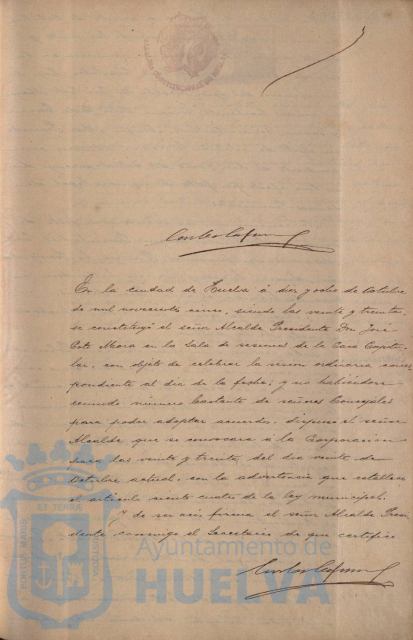 En la ciudad de Huelva á diez y ocho de Octubre
de mil novecientos cinco, siendo las veinte y treinta,
se constituyó el señor Alcalde Presidente Don José
Coto Mora en la Sala de sesiones de la Casa Capitu-
lar, con objeto de celebrar la sesion ordinaria corres
pondiente al dia de la fecha; y no habiéndose
reunido número bastante de señores Concejales
para poder adoptar acuerdo, dispuso el señor
Alcalde que se convocara á la Corporacion
para las veinte y treinta del dia veinte de
Octubre actual, con la advertencia que establece
el artículo ciento cuatro de la ley municipal.
Y de ser así, firma el señor Alcalde Presi
dente conmigo el Secretario de que certifico
PORTUS MARIS
ET TERRA
CUSTODIA
Ayuntamiento de
HUELVA